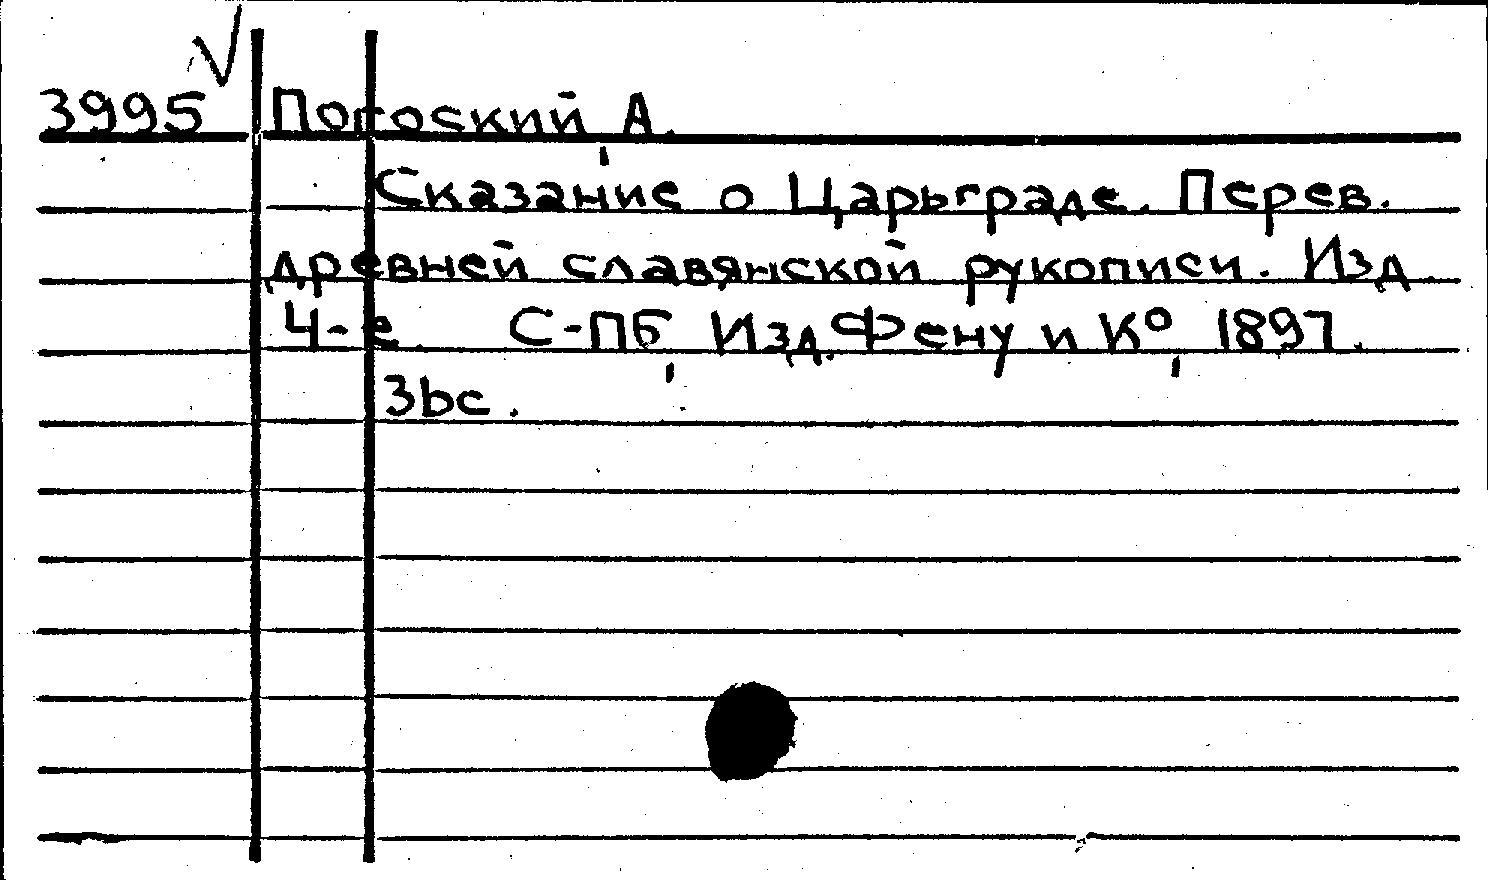 3995 Погоский, А.
Сказание о Царьграде. Перев.
древней славянской рукописи. Изд.
4-е. С-ПБ, Изд. Фену и К⁰, 1897.
36с.